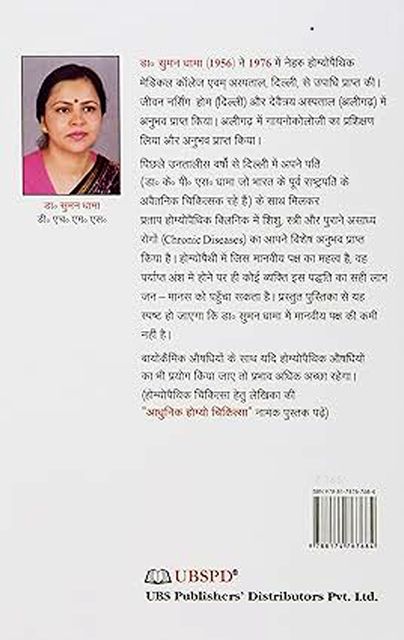 डा॰ सुमन धामा (1956) ने 1976 में नेहरु होम्योपैथिक
मेडिकल कॉलेज एवम् अस्पताल, दिल्ली, से उपाधि प्राप्त की।
जीवन नर्सिंग होम (दिल्ली) और देवत्रय अस्पताल (अलीगढ़) में
अनुभव प्राप्त किया। अलीगढ़ में गायनोकोलोजी का प्रशिक्षण
लिया और अनुभव प्राप्त किया।
पिछले उनतालीस वर्षों से दिल्ली में अपने पति
(डा॰ के॰ पी॰ एस॰ धामा जो भारत के पूर्व राष्ट्रपति के
अवैतनिक चिकित्सक रहे हैं) के साथ मिलकर
प्रताप होम्योपैथिक क्लिनिक में शिशु, स्त्री और पुराने असाध्य
रोगों (Chronic Diseases) का आपने विशेष अनुभव प्राप्त
किया है। होम्योपैथी में जिस मानवीय पक्ष का महत्व है, वह
पर्याप्त अंश में होने पर ही कोई व्यक्ति इस पद्धति का सही लाभ
जन – मानस को पहुँचा सकता है। प्रस्तुत पुस्तिका से यह
स्पष्ट हो जाएगा कि डा॰ सुमन धामा में मानवीय पक्ष की कमी
नहीं है।
बायोकैमिक औषधियों के साथ यदि होम्योपैथिक औषधियों
का भी प्रयोग किया जाए तो प्रभाव अधिक अच्छा रहेगा।
(होम्योपैथिक चिकित्सा हेतु लेखिका की
"आधुनिक होम्यो चिकित्सा" नामक पुस्तक पढ़े)
डा॰ सुमन धामा
डी॰ एच॰ एम॰ एस॰
ISBN 978-81-7476-768-4
9 788174 767684
UBSPD®
UBS Publishers' Distributors Pvt. Ltd.